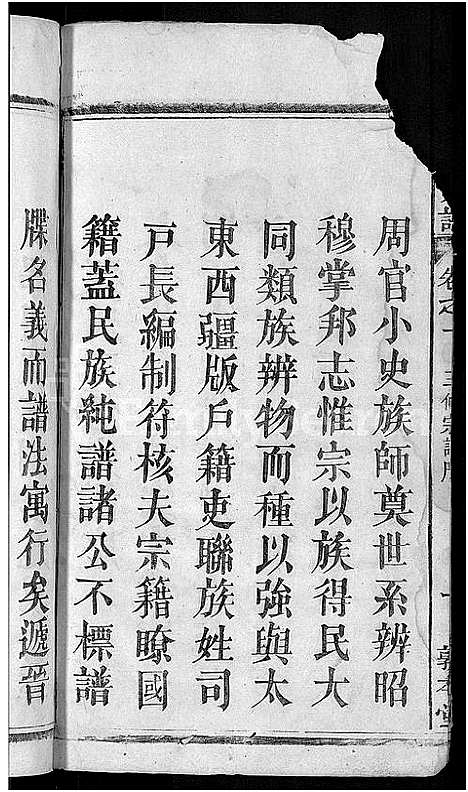 周官小史族師奠世系辨昭
穆掌邦志惟宗以族得民大
同類族辨物而種以強與太
東西疆版戶籍吏聯族姓司
戶長編制符核夫宗籍瞭國
籍蓋民族純譜諸公不標譜
牒名義而譜法寓行矣遞晉
譜 卷之一 三修宗譜序 一 敦本堂